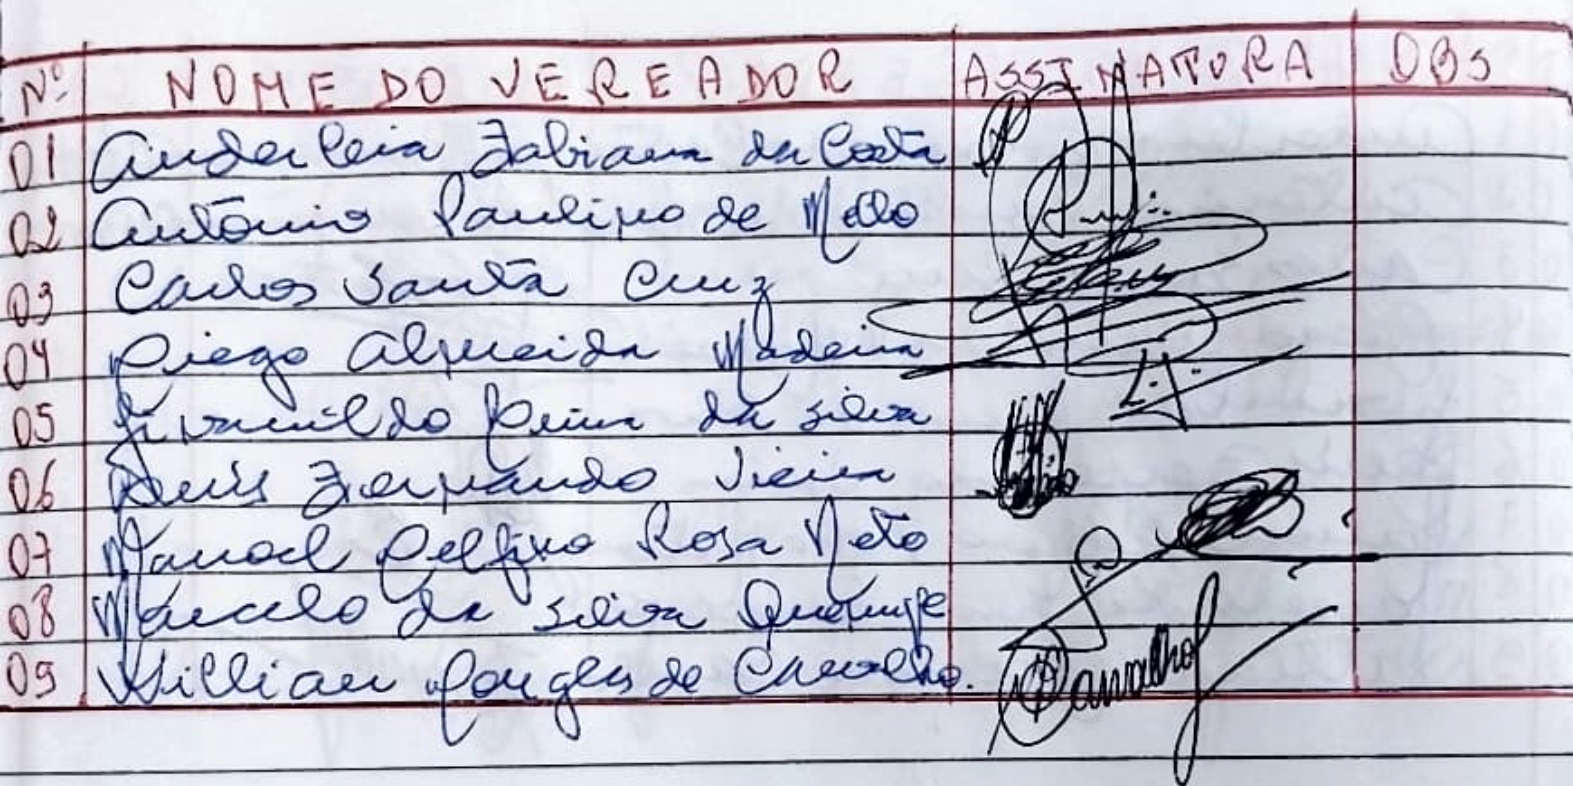 Nº NOME DO VEREADOR ASSINATURA OBS
01 Anderleia Fabiana da Costa
02 Antônio Paulino de Mello
03 Carlos Santa Cruz
04 Diego Almeida Madeira
05 da Silva
06 Luis Fernando Vieira
07 Manoel Delfino Rosa Neto
08 Marcelo da Silva
09 Willian Douglas de Carvalho. Carvalho